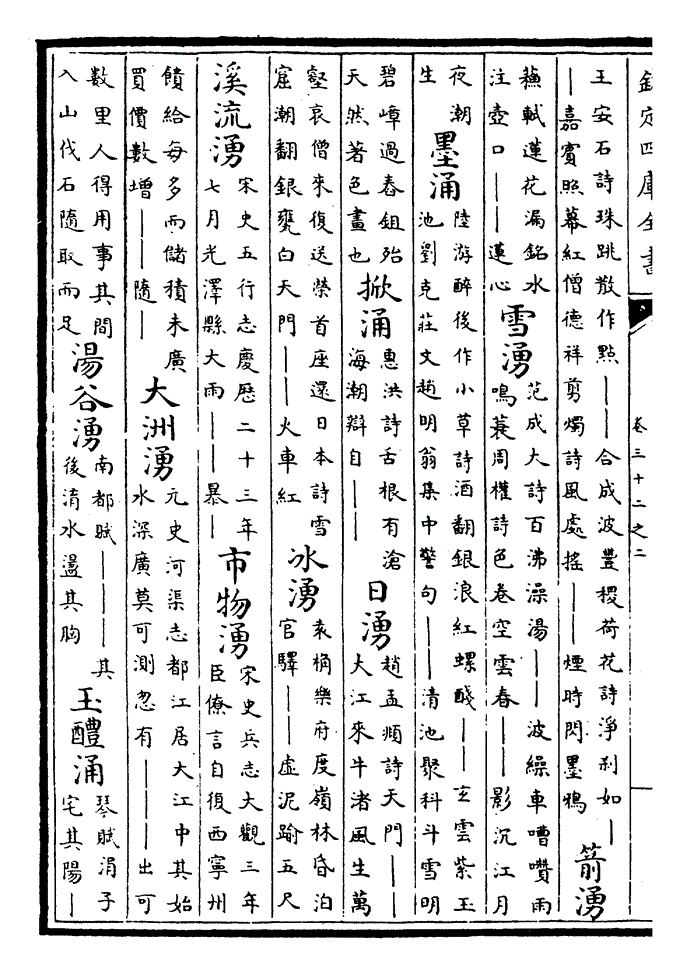 欽定四庫全書
卷三十二之二
王安石詩珠跳散作點——合成波豐稷荷花詩淨刹如—
—嘉賓照幕紅僧德祥剪燭詩風處搖——煙時閃墨鴉
箭湧
蘇軾蓮花漏銘水
注壺口——蓮心
雪湧
范成大詩百沸澡湯——波繰車嘈囋雨
鳴蓑周權詩色卷空雲春——影沉江月
夜潮
生
墨涌
陸游醉後作小草詩酒翻銀浪紅螺醆——玄雲紫玉
池劉克莊文趙明翁集中警句——清池聚科斗雪明
碧嶂過春鉏殆
天然著色畫也
掀涌
惠洪詩舌根有滄
海潮辯自——
日湧
趙孟頫詩天門——
大江來牛渚風生萬
壑哀僧來復送榮首座還日本詩雪
窟潮翻銀甕白天門——火車紅
冰湧
袁桷樂府度嶺林昏泊
官驛——虛泥踰五尺
溪流湧
宋史五行志慶歷二十三年
七月光澤縣大雨——暴—
市物湧
宋史兵志大觀三年
臣僚言自復西寧州
饋給每多而儲積未廣
買價數增——隨—
大洲湧
元史河渠志都江居大江中其始
水深廣莫可測忽有———出可
數里人得用事其間
入山伐石隨取而足
湯谷湧
南都賦———其
後淯水盪其胸
玉醴涌
琴賦涓子
宅其陽—